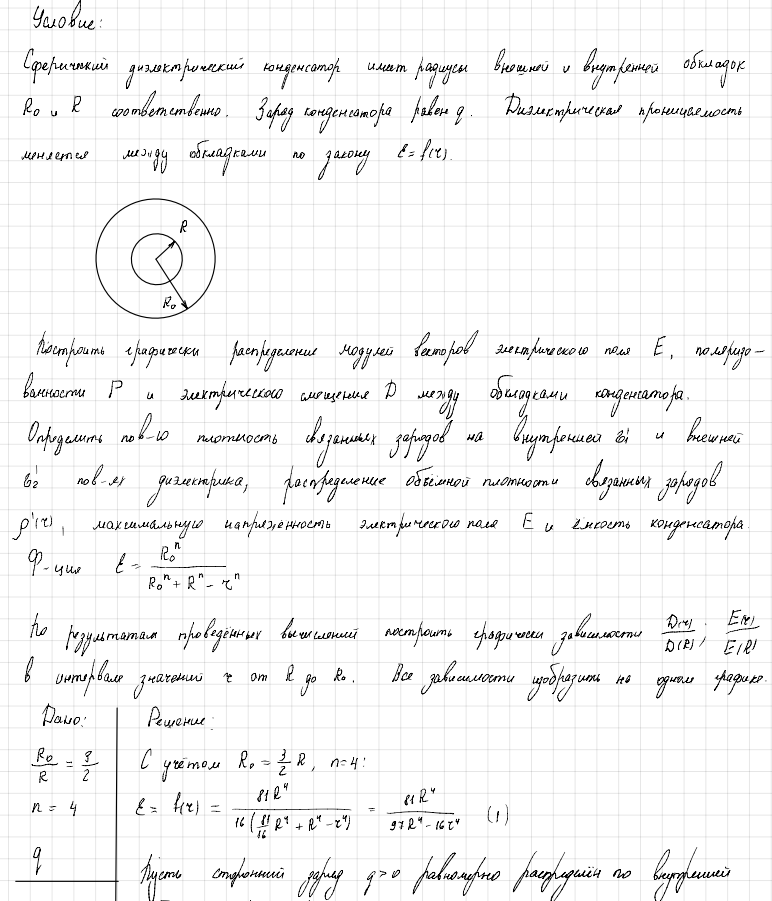 Условие:
Сферический диэлектрический конденсатор имеет радиусы внешней и внутренней обкладок
R₀ и R соответственно. Заряд конденсатора равен q. Диэлектрическая проницаемость
меняется между обкладками по закону ε = f(r).
R
R₀
Построить графически распределение модулей векторов электрического поля E, поляризо-
ванности P и электрического смещения D между обкладками конденсатора.
Определить пов-ю плотность связанных зарядов на внутренней σ₁' и внешней
σ₂' пов-ях диэлектрика, распределение объёмной плотности связанных зарядов
ρ'(r), максимальную напряженность электрического поля E и ёмкость конденсатора.
Ф-ция ε = R₀ⁿ / (R₀ⁿ + Rⁿ - rⁿ)
По результатам проведённых вычислений построить графически зависимости D(r)/D(R); E(r)/E(R)
в интервале значений r от R до R₀. Все зависимости изобразить на одном графике.
Дано: Решение:
R₀/R = 3/2 С учётом R₀ = 3/2 R, n=4:
n = 4 ε = f(r) = 81R⁴ / 16(81/16 R⁴ + R⁴ - r⁴) = 81R⁴ / 97R⁴ - 16r⁴ (1)
q Пусть сторонний заряд q>0 равномерно распределён по внутренней